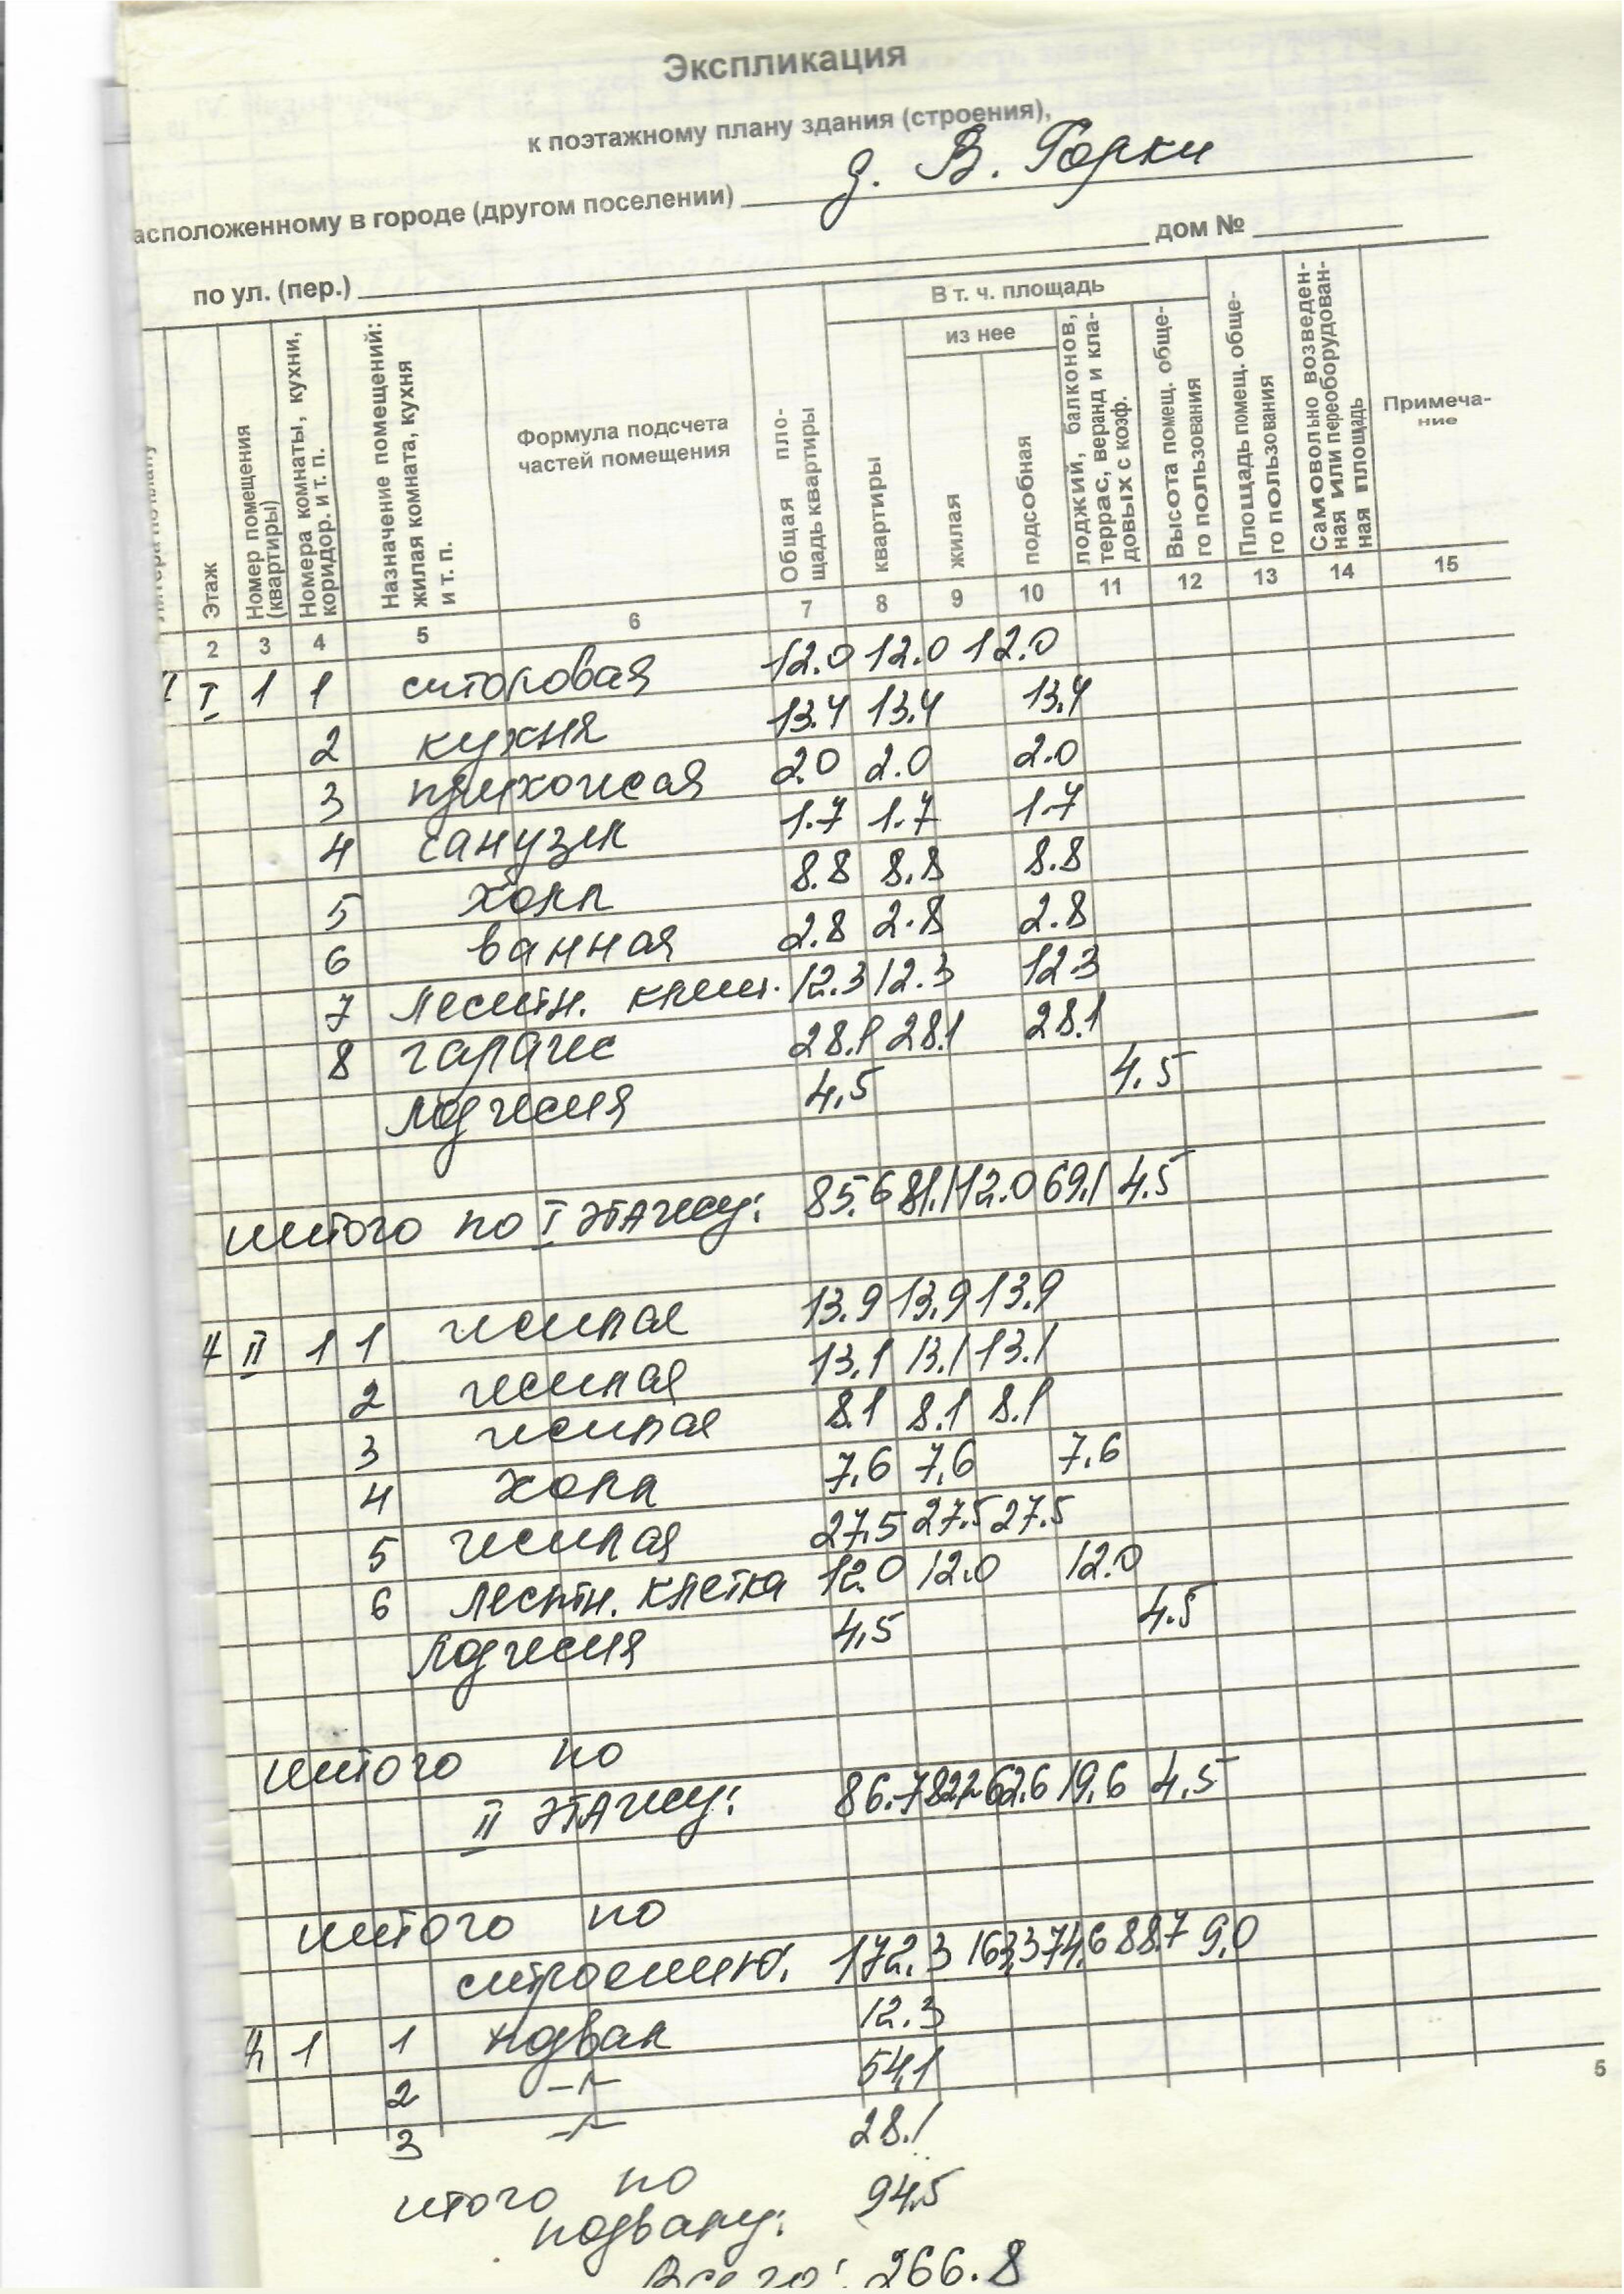 Экспликация
к поэтажному плану здания (строения),
д. В. Горки
асположенному в городе (другом поселении)
дом №
по ул. (пер.)
Этаж
Номер помещения (квартиры)
Номера комнаты, кухни, коридор. и т. п.
Назначение помещений: жилая комната, кухня и т. п.
Формула подсчета частей помещения
Общая пло-
щадь квартиры
В т. ч. площадь
квартиры
из нее
жилая
подсобная
лоджий, балконов,
террас, веранд и кла-
довых с коэф.
Высота помещ. обще-
го пользования
Площадь помещ. обще-
го пользования
Самовольно возведен-
ная или переоборудован-
ная площадь
Примеча-
ние
2 3 4 5 6 7 8 9 10 11 12 13 14 15
I 1 1 столовая 12.0 12.0 12.0
2 кухня 13.4 13.4 13.4
3 прихожая 2.0 2.0 2.0
4 санузел 1.7 1.7 1.7
5 холл 8.8 8.8 8.8
6 ванная 2.8 2.8 2.8
7 лестн. клет. 12.3 12.3 12.3
8 гараж 28.1 28.1 28.1
лоджия 4,5 4.5
итого по I этажу: 85.6 81.1 12.0 69.1 4.5
II 1 1 жилая 13.9 13.9 13.9
2 жилая 13.1 13.1 13.1
3 жилая 8.1 8.1 8.1
4 холл 7,6 7,6 7,6
5 жилая 27,5 27.5 27.5
6 лестн. клетка 12.0 12.0 12.0
лоджия 4,5 4.5
итого по
II этажу: 86.7 82.2 62.6 19,6 4.5
итого по
строению: 172.3 163,3 74,6 88.7 9,0
1 1 подвал 12.3
2 –"– 54,1
3 –"– 28.1
5
итого по
подвалу: 94.5
Всего: 266.8